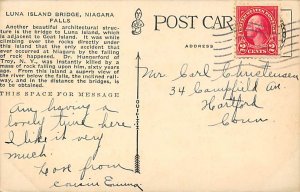 LUNA ISLAND BRIDGE, NIAGARA
FALLS
Another beautiful architectural structure
is the bridge to Luna Island, which
is adjacent to Goat Island. It was while
climbing over the rocks directly under
this island that the only accident that
ever occurred at Niagara by the falling
of rock happened. Dr. Hunnerford of
Troy, N. Y., was instantly killed by a
mass of rock falling upon him, sixty years
ago. From this island a superb view of
the river below the falls, the inclined rail-
way, and in the distance the bridges, is
to be obtained.
THIS SPACE FOR MESSAGE
Am having a
lovely time here
I like it very
much.
Love from
cousin Emma
POST CARD
ADDRESS
2 CENTS 2
Mr. Earl Christensen
34 Campfield Av.
Hartford
Conn.